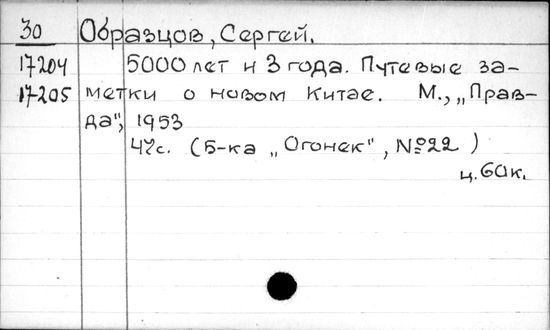 30 Образцов, Сергей.
17204 5000 лет и 3 года. Путевые за-
17205 метки о новом Китае. М., „Прав-
да", 1953
47с. (Б-ка „Огонек", №22)
ц. 60к.